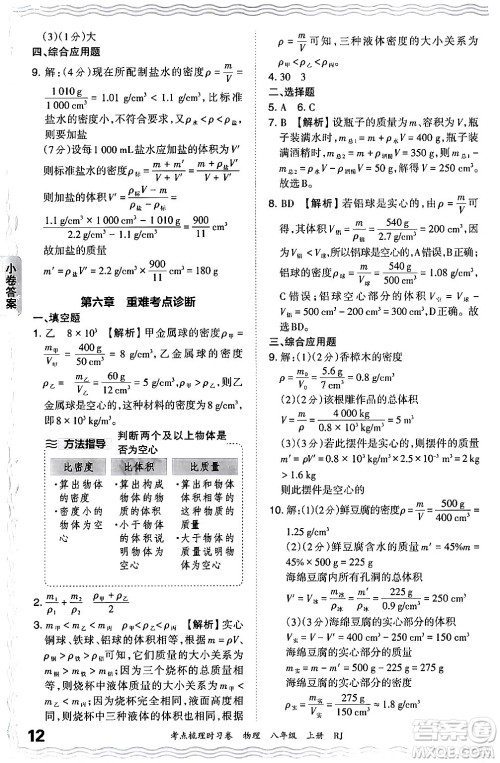 (3)(1分)大
四、综合应用题
9. 解:(4分)现在所配制盐水的密度ρ=m/V=
1 010 g/1 000 cm³=1.01 g/cm³<1.1 g/cm³,比标准
盐水的密度小,要加盐
(7分)设每1 000 mL盐水应加盐的体积为V′
则标准盐水的密度ρ=(m+m′)/(V+V′)=(m+ρ盐V′)/(V+V′)
则加盐的体积 V′=(ρV-m)/(ρ盐-ρ)=
(1.1 g/cm³×1 000 cm³-1 010 g)/(2.2 g/cm³-1.1 g/cm³)=900/11 cm³
故加盐的质量
m′=ρ盐V′=2.2 g/cm³×900/11 cm³=180 g
第六章 重难考点诊断
一、填空题
1. 乙 8 【解析】甲金属球的密度ρ甲=
m甲/V甲=400 g/50 cm³=8 g/cm³,乙金属球的密度
ρ乙=m乙/V乙=60 g/12 cm³=5 g/cm³,ρ甲>ρ乙,则乙
金属球是空心的,这种材料的密度为8 g/cm³,
即8×10³ kg/m³。
方法指导
判断两个及以上物体是
否为空心
比密度
比体积
比质量
· 算出物体
的密度
· 密度小的
物体为空
心
· 算出物体
的体积
· 小于物体
的体积,
则为空心
· 算出对应体
积的质量
· 大于物体的
质量,则物
体为空心
2. m₁/ρ₁+m₂/ρ₂
3. m甲<m乙<m丙 ρ甲<ρ乙<ρ丙 【解析】实心
铜球、铁球、铝球的体积相等,由m=ρV、
ρ铜>ρ铁>ρ铝可知,质量的大小关系为m甲<
m乙<m丙;三个烧杯相同,此时三个烧杯的总
质量相等,则液体质量的大小关系为m甲液<
m乙液<m丙液,且烧杯中的液面相平,由
ρ=m/V可知,三种液体密度的大小关系为
ρ甲<ρ乙<ρ丙。
4. 30 3
二、选择题
5. A 6. C
7. B 【解析】设瓶子的质量为m,容积为V,瓶
子装满水时,m总1=m+ρ水V=400 g,瓶子装
满酒精时,m总2=m+ρ酒精V=350 g,m总1-
m总2=ρ水V-ρ酒精V=50 g,解得V=250 cm³。
故选B。
8. BD 【解析】若铝球是实心的,则铝球的体积
V铝=m/ρ铝=540 g/2.7 g/cm³=200 cm³<270 cm³,则
铝球的密度ρ球=m/V球=540 g/270 cm³=2 g/cm³,则
铝球是空心的,铝球空心部分的体积V空=V球-
V铝=270 cm³-200 cm³=70 cm³。故选BD。
三、综合应用题
9. 解:(1)(2分)香樟木的密度
ρ=m₀/V₀=5.6 g/7 cm³=0.8 g/cm³
(2)(2分)该根雕作品的总体积
V=m/ρ=4 000 kg/0.8×10³ kg/m³=5 m³
(3)(2分)若此摆件是实心的,则摆件的质量
m′=ρV′=0.8 g/cm³×2.5×10³ cm³=2 000 g=2 kg
>1.6 kg
则此摆件是空心的
10. 解:(1)(2分)鲜豆腐的密度ρ=m/V=500 g/450 cm³
≈1.1 g/cm³
(2)(2分)鲜豆腐含水的质量m′=45%m=
45%×500 g=225 g
海绵豆腐内所有孔洞的总体积
V孔=V冰=m冰/ρ冰=m′/ρ冰=225 g/0.9 g/cm³=250 cm³
(3)(2分)海绵豆腐的质量m海=m-m′=
500 g-225 g=275 g
海绵豆腐实心部分的体积V实=V-V孔=
450 cm³-250 cm³=200 cm³
海绵豆腐实心部分的密度ρ实=m海/V实=
275 g/200 cm³≈1.4 g/cm³
小卷答案
12
考点梳理时习卷 物理 八年级 上册 RJ